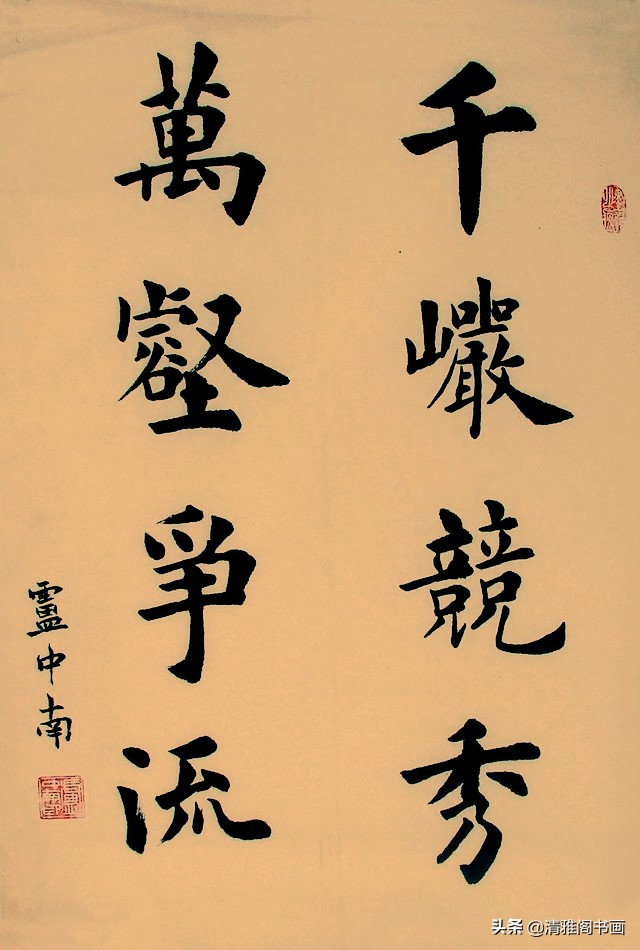 千巗競秀
萬壑爭流
盧中南
头条 @清雅阁书画